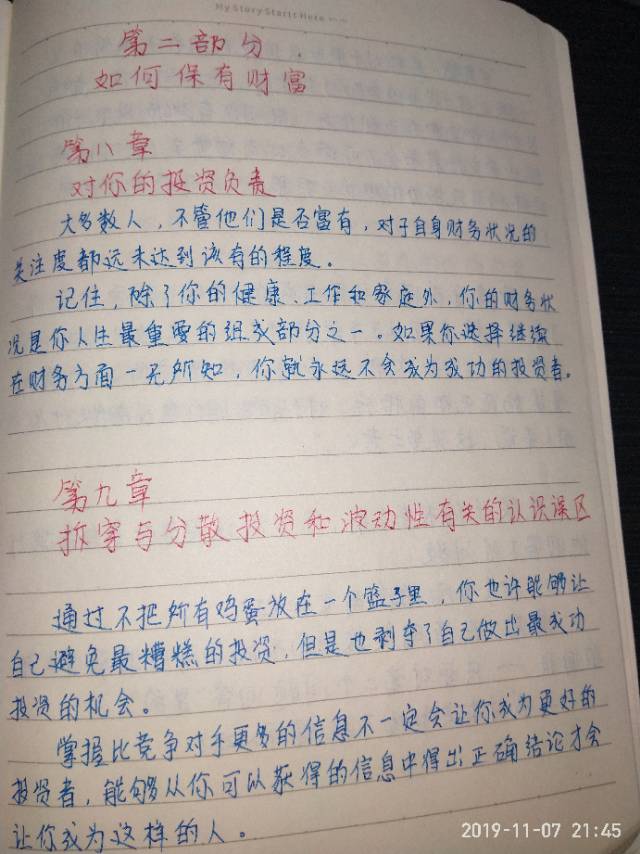 My Story Starts Here
第二部分
如何保有财富
第八章
对你的投资负责
大多数人，不管他们是否富有，对于自身财务状况的
关注度都远未达到该有的程度。
记住，除了你的健康、工作和家庭外，你的财务状
况是你人生最重要的组成部分之一。如果你选择继续
在财务方面一无所知，你就永远不会成为成功的投资者。
第九章
拆穿与分散投资和波动性有关的认识误区
通过不把所有鸡蛋放在一个篮子里，你也许能够让
自己避免最糟糕的投资，但是也剥夺了自己做出最成功
投资的机会。
掌握比竞争对手更多的信息不一定会让你成为更好的
投资者，能够从你可以获得的信息中得出正确结论才会
让你成为这样的人。
2019-11-07 21:45